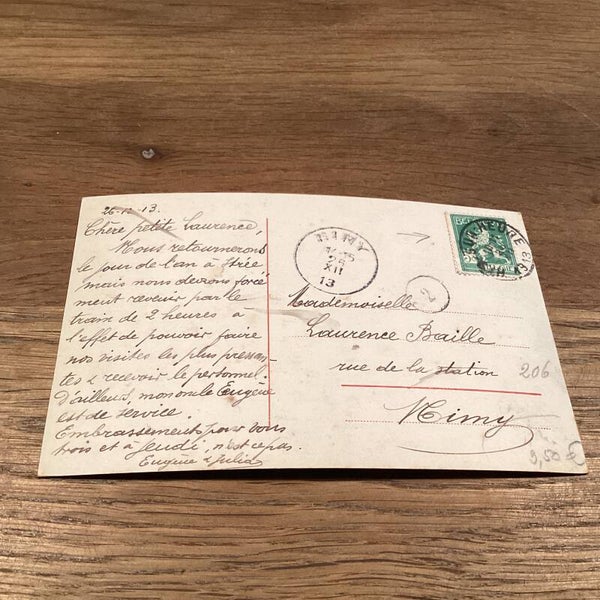 26-12-13.
Chère petite Laurence,
Nous retournerons
le jour de l'an à
mais nous devrons forcé
ment revenir par le
train de 2 heures à
l'effet de pouvoir faire
nos visites les plus pressan-
tes & recevoir le personnel.
D'ailleurs, mononcle Eugène
est de service.
Embrassements pour vous
trois et à jeudi, n'est ce pas.
Eugène & Julia
NIMY
XII
13
2
Mademoiselle
Laurence Baille
rue de la station
Nimy
206
9,50 €